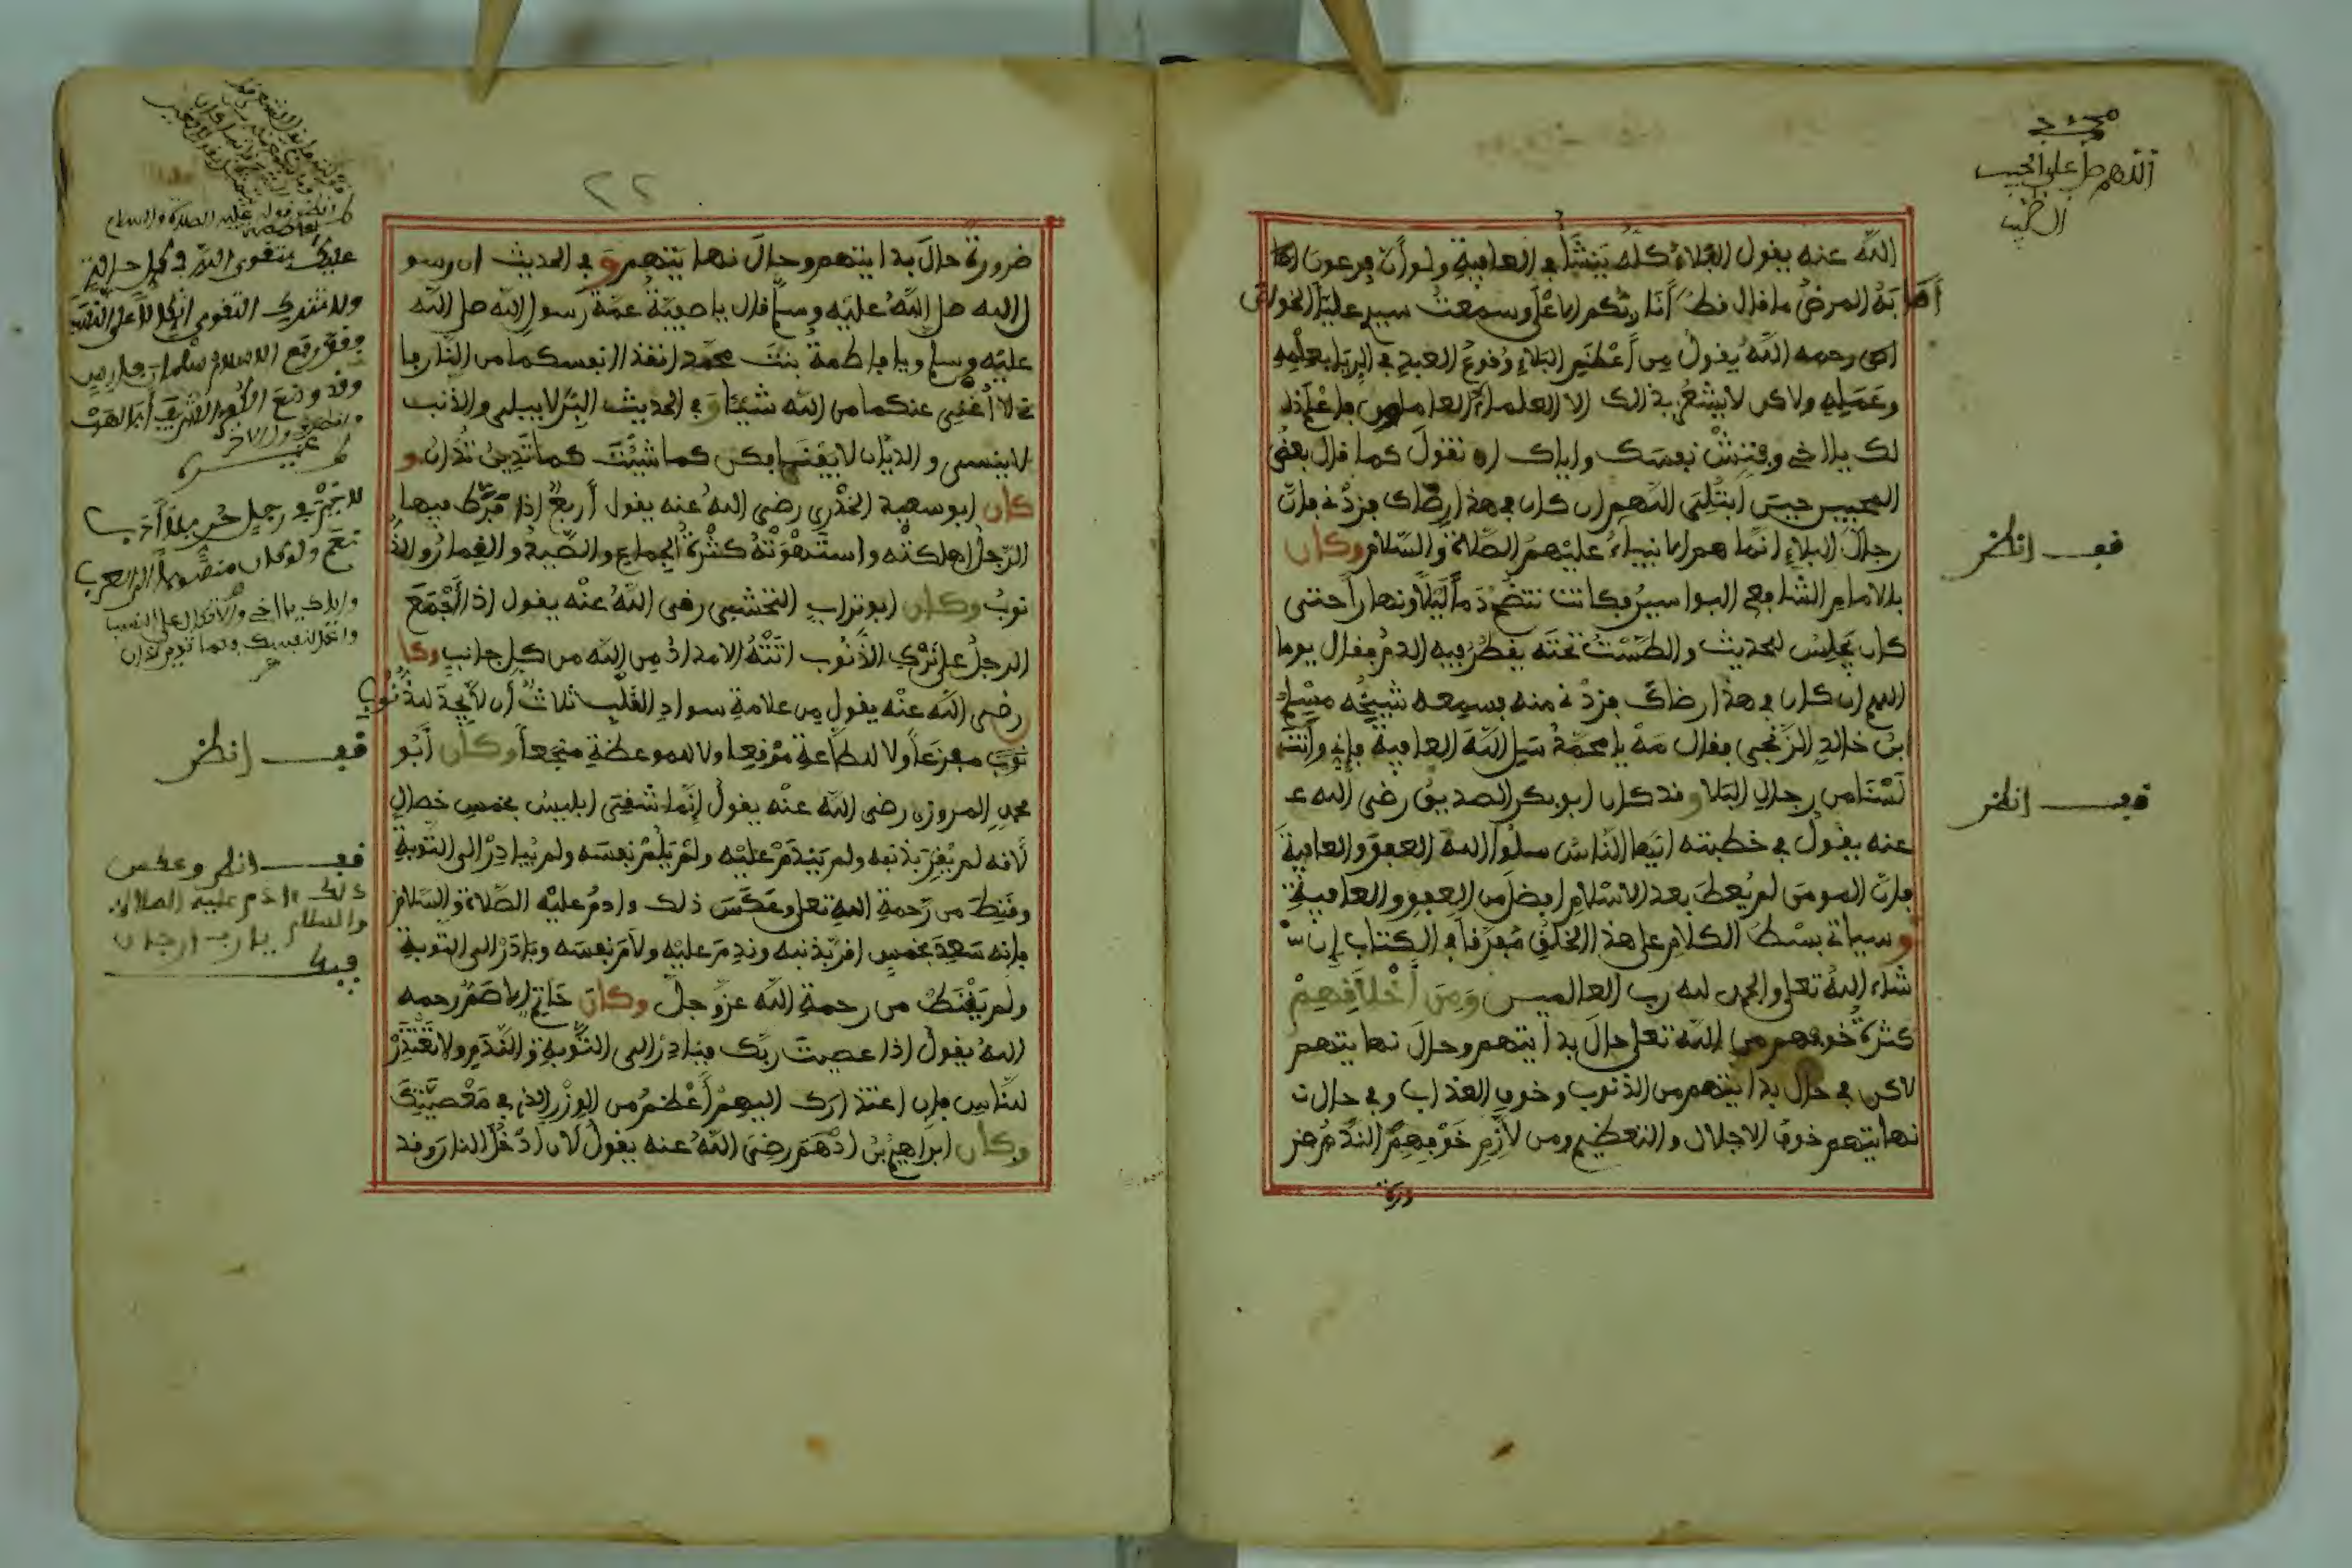 اللهم صل على الحبيب
الله عنه يقول البلاء كله ينشأ في العافية ولو أن فرعون
أصابه المرض ما قال قط أنا ربكم الاعلى وسمعت سيدي عليا الخواص
رحمه الله يقول من أعظم البلاء وقوع العبد في الريا بعلمه
وعمله ولاكن لا يشعر بذالك الا العلماء العاملون فاعلم ذلك
لك يا اخي وفتش نفسك واياك ان تقول كما قال بعض
المحبين حين ابتلي اللهم ان كان في هذا رضاك فزدني فان
رجال البلاء انما هم الانبياء عليهم الصلاة والسلام وكان
بالامام الشافعي البواسير فكانت تنضح دما ليلا ونهارا حتى
كان يجلس للحديث والطست تحته يقطر فيه الدم فقال يوما
اللهم ان كان في هذا رضاك فزدني منه فسمعه شيخه مسلم
بن خالد الزنجي فقال مه يا محمد سل الله العافية فإني وأنت
لسنا من رجال البلا وقد كان ابو بكر الصديق رضي الله عـ
عنه يقول في خطبته ايها الناس سلوا الله العفو والعافية
فان المومن لم يعط بعد الاسلام افضل من العفو والعافية
وسياتي بسط الكلام على هذا الخلق مفرقا في الكتاب إن شـ
شاء الله تعلى والحمد لله رب العالمين ومن أخلاقهم
كثرة خوفهم من الله تعلى حال بدايتهم وحال نهايتهم
لاكن في حال بدايتهم من الذنوب وخوف العذاب وفي حالت
نهايتهم خوف الاجلال والتعظيم ومن لازم خوفهم الندم ضر
ورة
قف انظر
قف انظر
٢٢
ضرورة حال بدايتهم وحال نهايتهم وفي الحديث ان رسو
ل الله صل الله عليه وسلم قال يا صفية عمة رسول الله صل الله
عليه وسلم ويا فاطمة بنت محمد انقذا انفسكما من النار فا
ني لا أغني عنكما من الله شيئا وفي الحديث البر لا يبلى والذنب
لا ينسى والديان لا يفنى فكن كما شئت كما تدين تدان و
كان ابو سعيد الخدري رضي الله عنه يقول أربع اذا فرط فيها
الرجل اهلكته واستهوته كثرة الجماع والصيد والقمار والذ
نوب وكان ابو تراب النخشبي رضي الله عنه يقول اذا أجمع
الرجل على ترك الذنوب اتته الامداد من الله من كل جانب وكا
رضي الله عنه يقول من علامة سواد القلب ثلاث أن لا يجد للذنوب
مفزعا ولا للطاعة موقعا ولا للموعظة منجعا وكان أبو
محمد المروزي رضي الله عنه يقول إنما شقي ابليس بخمس خصال
لأنه لم يقر بذنبه ولم يندم عليه ولم يلم نفسه ولم يبادر الى التوبة
وقنط من رحمة الله تعلى وعكس ذلك وادم عليه الصلاة والسلام
فانه سعد بخمس اقر بذنبه وندم عليه ولام نفسه وبادر الى التوبة
ولم يقنط من رحمة الله عز وجل وكان حاتم الاصم رحمه
الله يقول اذا عصيت ربك فبادر الى التوبة والندم ولا تعتذر
للناس فان اعتذارك اليهم أعظم من الوزر الذي في معصيتك
وكان ابراهيم بن ادهم رضي الله عنه يقول لان ادخل النار وقد
انظر قوله عليه الصلاة والسلام
عليك بتقوى الله في كل حالة
ولا تترك التقوى اتكالا على النسب
فقد رفع الاسلام سلمان فارس
وقد وضع الكفر الشريف أبا لهب
قف انظر
قف انظر وعكس
ذلك ادم عليه الصلاة
والسلام